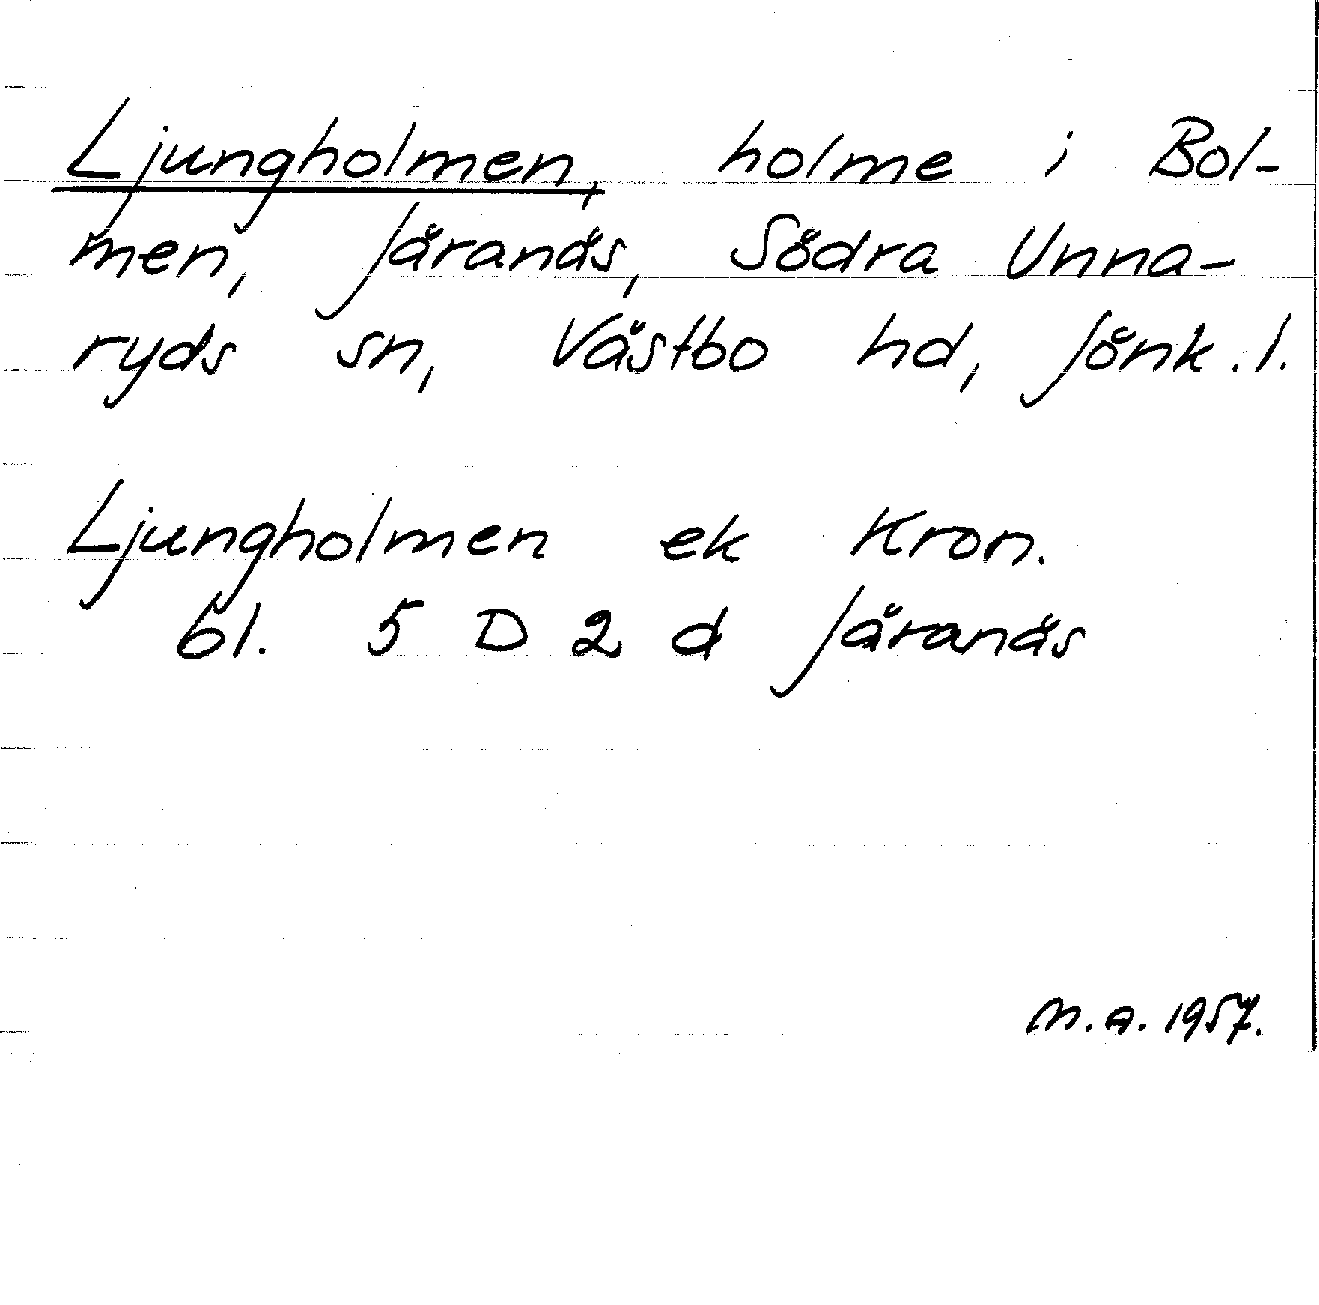 Ljungholmen, holme i Bol-
men, Järanäs, Södra Unna-
ryds sn, Västbo hd, Jönk. l.
Ljungholmen ek Kron.
bl. 5 D 2 d Järanäs
M.A. 1957.